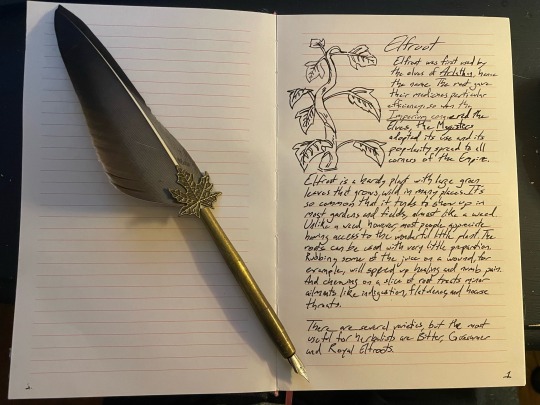 Elfroot
Elfroot was first used by
the elves of Arlathan, hence
the name. The root gave
their medicines particular
efficiency, so when the
Imperium conquered the
Elves, the Magisters
adopted its use and its
popularity spread to all
corners of the Empire.
Elfroot is a hardy plant with large green
leaves that grows wild in many places. It's
so common that it tends to show up in
most gardens and fields, almost like a weed.
Unlike a weed, however, most people appreciate
having access to this wonderful little plant. The
roots can be used with very little preparation.
Rubbing some of the juice on a wound, for
example, will speed up healing and numb pain.
And chewing on a slice of root treats minor
ailments like indigestion, flatulence, and hoarse
throats.
There are several varieties, but the most
useful for herbalists are Bitter, Gossamer
and Royal Elfroots.
2
1